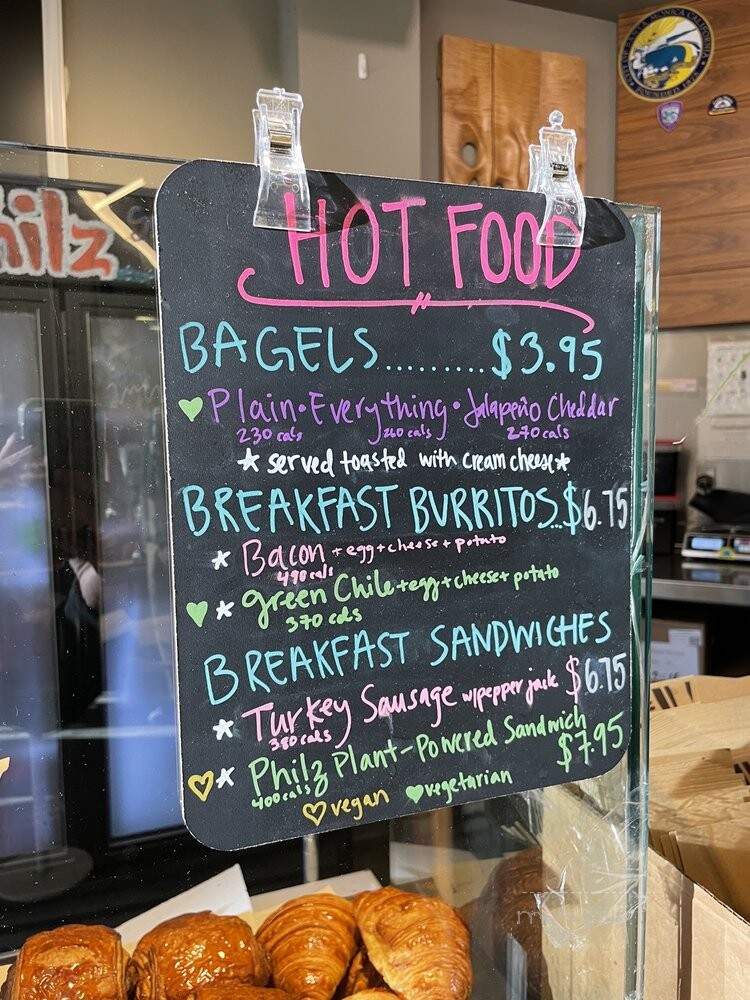 HOT FOOD
BAGELS.........$3.95
Plain • Everything • Jalapeño Cheddar
230 cals 260 cals 270 cals
* served toasted with cream cheese *
BREAKFAST BURRITOS...$6.75
* Bacon + egg + cheese + potato
490 cals
* green Chile + egg + cheese + potato
370 cals
BREAKFAST SANDWICHES
* Turkey Sausage w/pepper jack $6.75
380 cals
* Philz Plant-Powered Sandwich
400 cals $7.95
vegan vegetarian
hilz